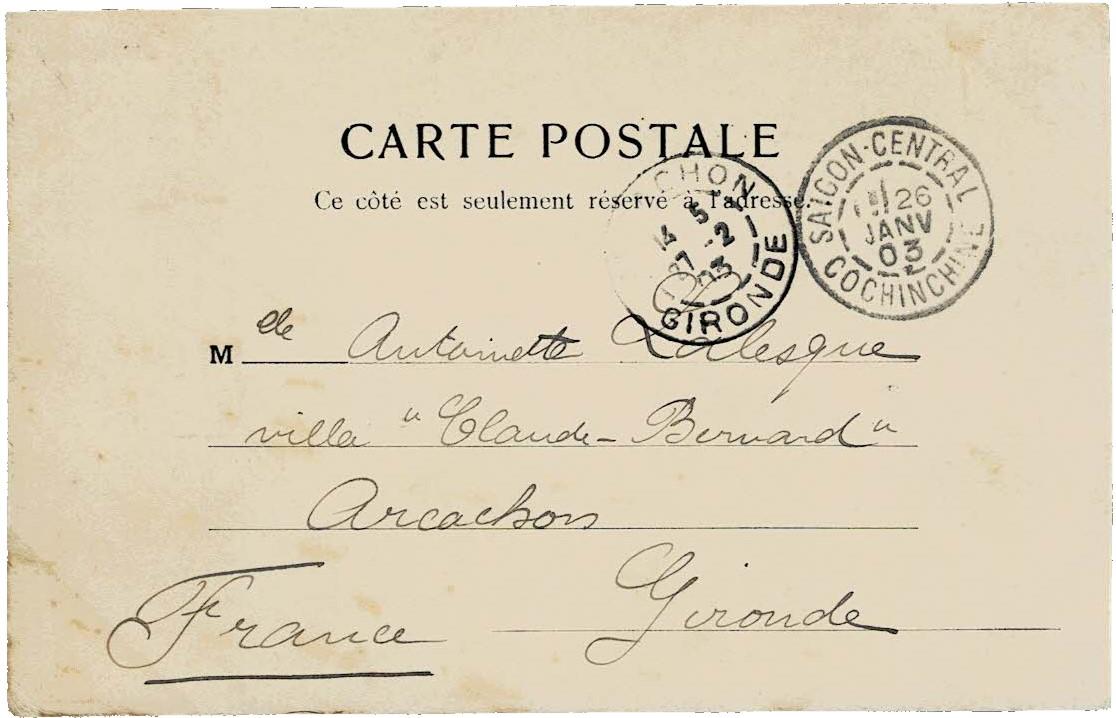 CARTE POSTALE
Ce côté est seulement réservé à l'adresse.
CHON
14 5
27 -2
03
GIRONDE
SAIGON-CENTRAL
26
JANV
03
COCHINCHINE
Melle Antoinette Lalesque
villa "Claude-Bernard"
Arcachon
Gironde
France